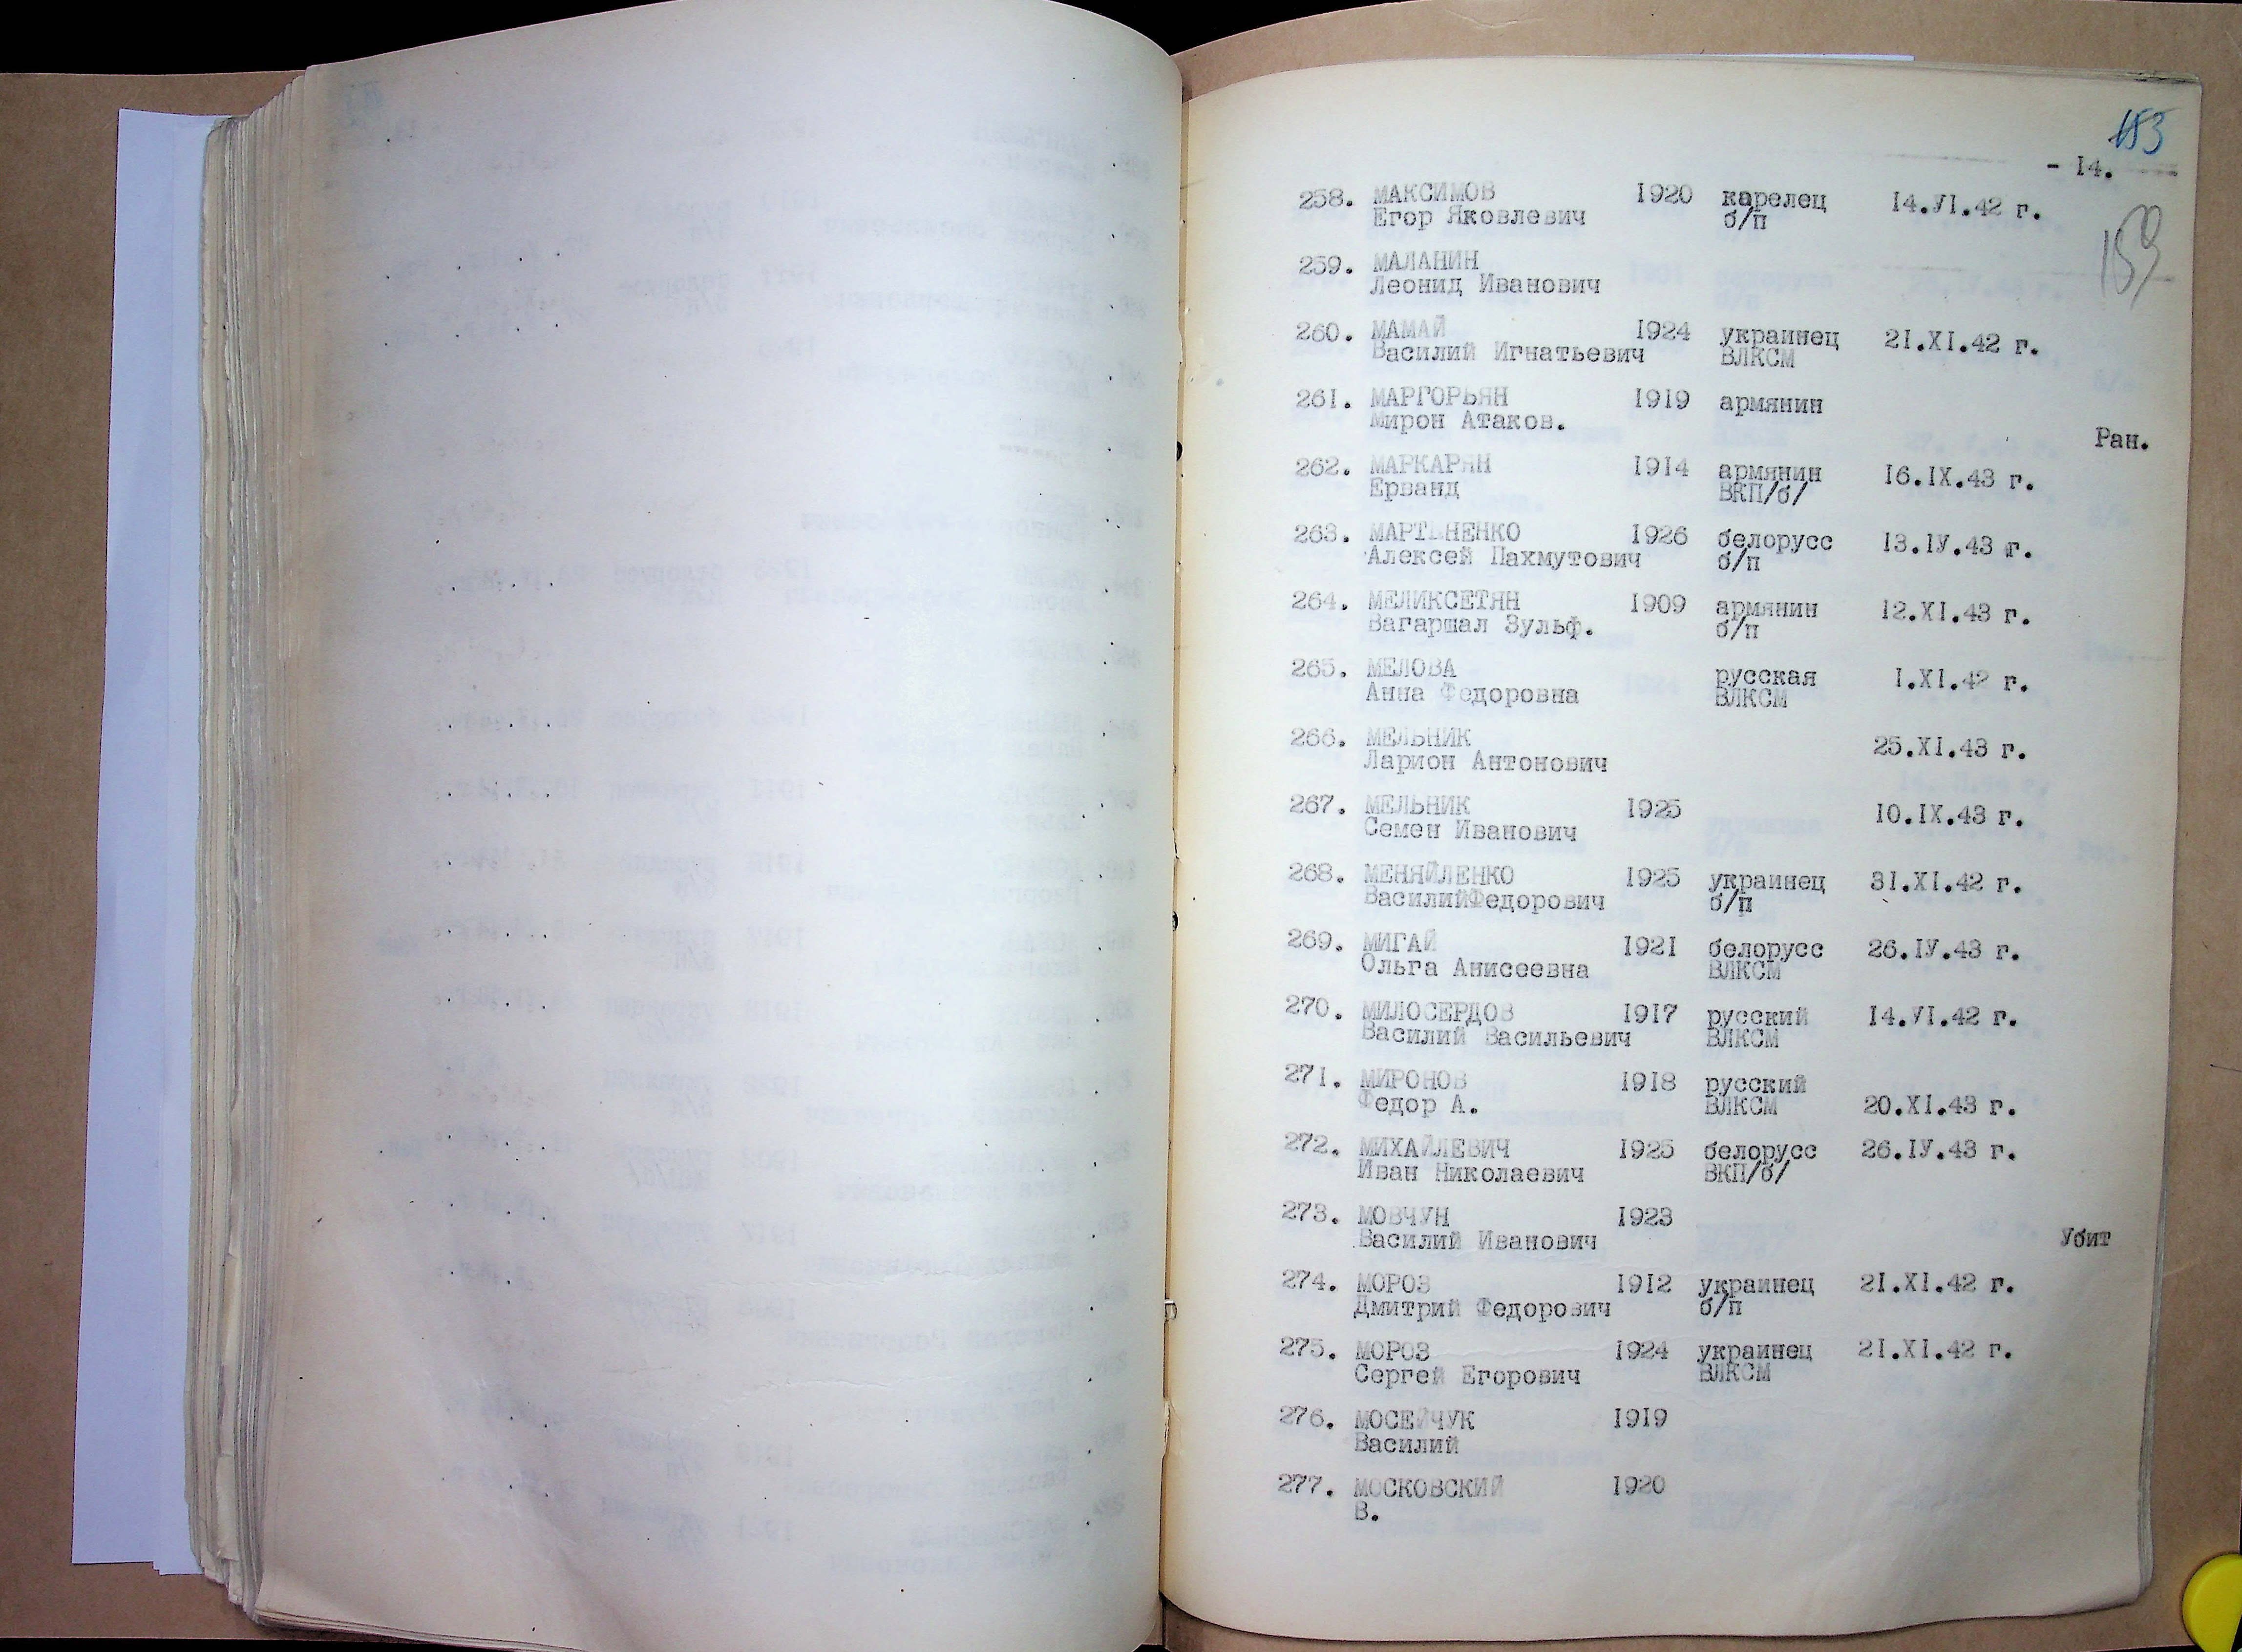 153
- 14.
159
258. МАКСИМОВ 1920 карелец 14.УІ.42 г.
Егор Яковлевич б/п
259. МАЛАНИН
Леонид Иванович
260. МАМАЙ 1924 украинец 21.ХІ.42 г.
Василий Игнатьевич ВЛКСМ
261. МАРГОРЬЯН 1919 армянин
Мирон Атаков.
Ран.
262. МАРКАРЯН 1914 армянин 16.ІХ.43 г.
Ерванд ВКП/б/
263. МАРТЫНЕНКО 1926 белорусс 13.ІУ.43 г.
Алексей Пахмутович б/п
264. МЕЛИКСЕТЯН 1909 армянин 12.ХІ.43 г.
Вагаршал Зульф. б/п
265. МЕЛОВА русская 1.ХІ.42 г.
Анна Федоровна ВЛКСМ
266. МЕЛЬНИК 25.ХІ.43 г.
Ларион Антонович
267. МЕЛЬНИК 1925 10.ІХ.43 г.
Семен Иванович
268. МЕНЯЙЛЕНКО 1925 украинец 31.ХІ.42 г.
ВасилийФедорович б/п
269. МИГАЙ 1921 белорусс 26.ІУ.43 г.
Ольга Анисеевна ВЛКСМ
270. МИЛОСЕРДОВ 1917 русский 14.УІ.42 г.
Василий Васильевич ВЛКСМ
271. МИРОНОВ 1918 русский
Федор А. ВЛКСМ 20.ХІ.43 г.
272. МИХАЙЛЕВИЧ 1925 белорусс 26.ІУ.43 г.
Иван Николаевич ВКП/б/
273. МОВЧУН 1923
Василий Иванович Убит
274. МОРОЗ 1912 украинец 21.ХІ.42 г.
Дмитрий Федорович б/п
275. МОРОЗ 1924 украинец 21.ХІ.42 г.
Сергей Егорович ВЛКСМ
276. МОСЕЙЧУК 1919
Василий
277. МОСКОВСКИЙ 1920
В.